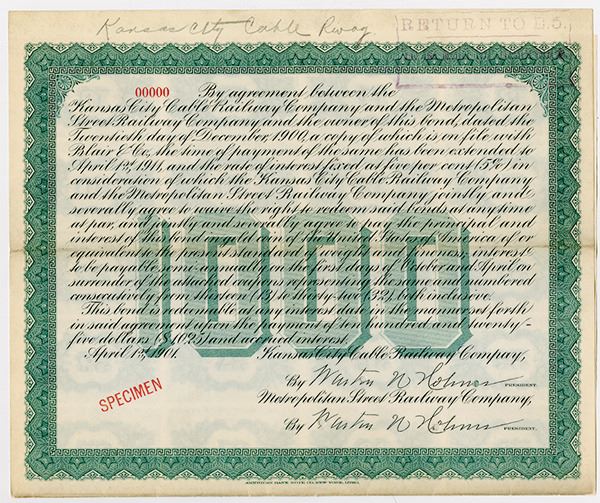 Kansas City Cable Rway
RETURN TO D.5.
00000 By agreement between the
Kansas City Cable Railway Company and the Metropolitan
Street Railway Company and the owner of this bond, dated the
Twentieth day of December, 1900, a copy of which is on file with
Blair & Co, the time of payment of the same has been extended to
April 1st, 1911, and the rate of interest fixed at five per cent (5%) in
consideration of which the Kansas City Cable Railway Company
and the Metropolitan Street Railway Company jointly and
severally agree to waive the right to redeem said bonds at any time
at par, and they severally agree to pay the principal and
interest of this bond in gold coin of the United States of America of or
equivalent to the present standard of weight and fineness, interest
to be payable semi-annually on the first days of October and April on
surrender of the attached coupons for the same, numbered
consecutively from eleven (11) to thirty-two (32), both inclusive.
This bond is redeemable at any interest date in the manner set forth
in said agreement upon the payment of ten hundred and twenty-
five dollars ($1025) and accrued interest.
April 1st, 1901. Kansas City Cable Railway Company,
1000
By Walton H Holmes PRESIDENT.
SPECIMEN
Metropolitan Street Railway Company,
By Walton H Holmes PRESIDENT.
AMERICAN BANK NOTE CO. NEW YORK.